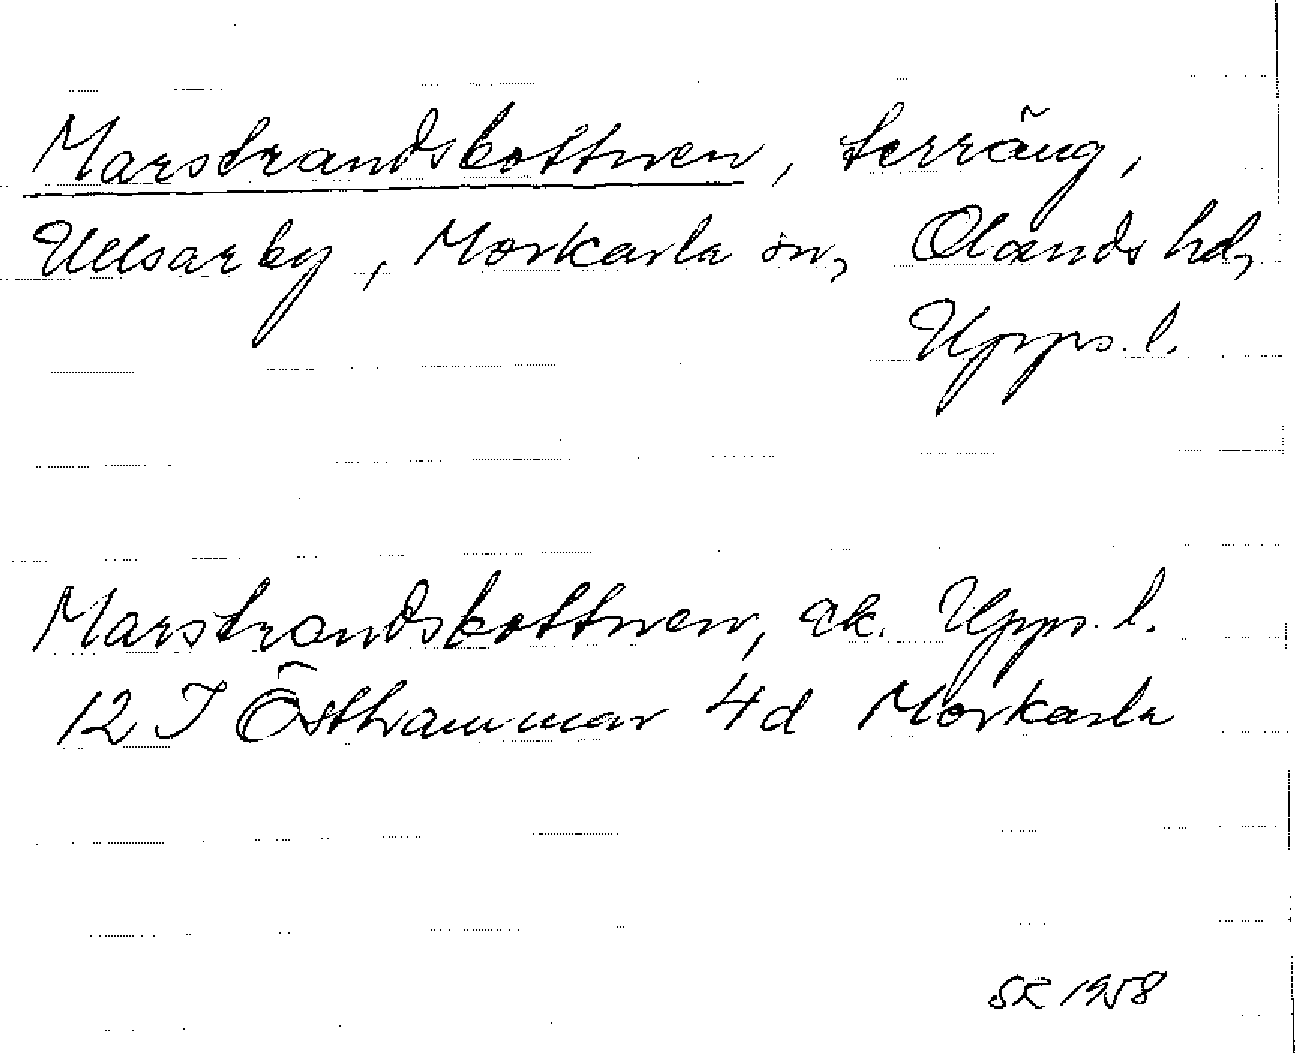 Marstrandsbottnen, terräng,
Ullsarby, Morkarla sn, Olands hd,
Upps. l.
Marstrandsbottnen, ek. Upps. l.
12 I Östhammar 4d Morkarla
SR 1958